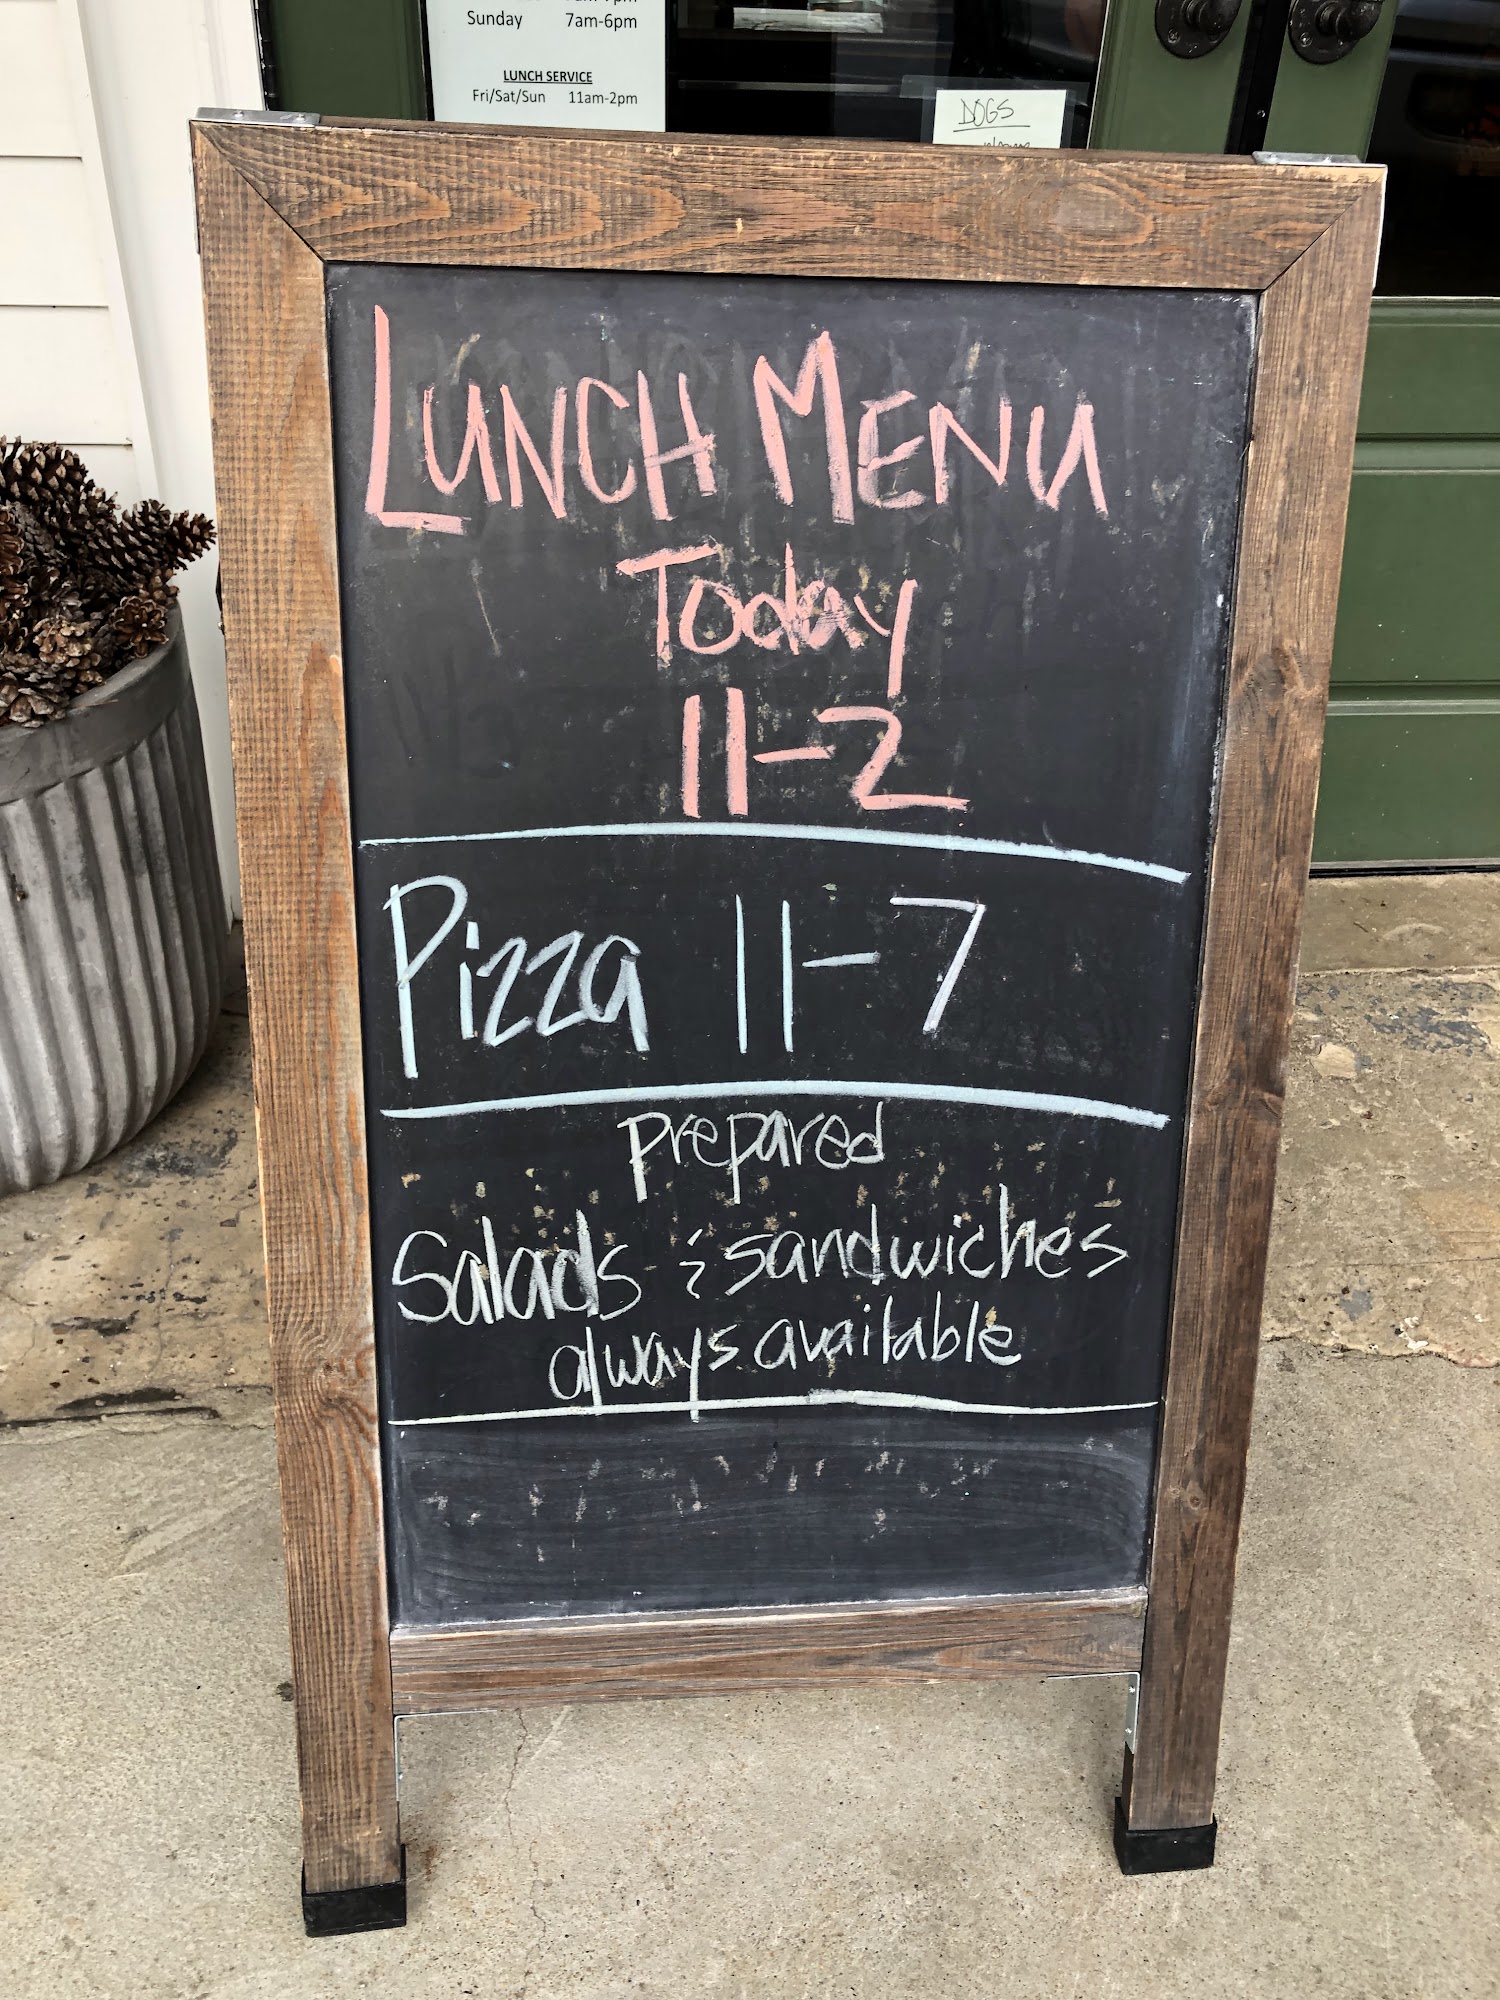 Sunday 7am-6pm
LUNCH SERVICE
Fri/Sat/Sun 11am-2pm
DOGS
LUNCH MENU
Today
11-2
Pizza 11-7
prepared
Salads & sandwiches
always available